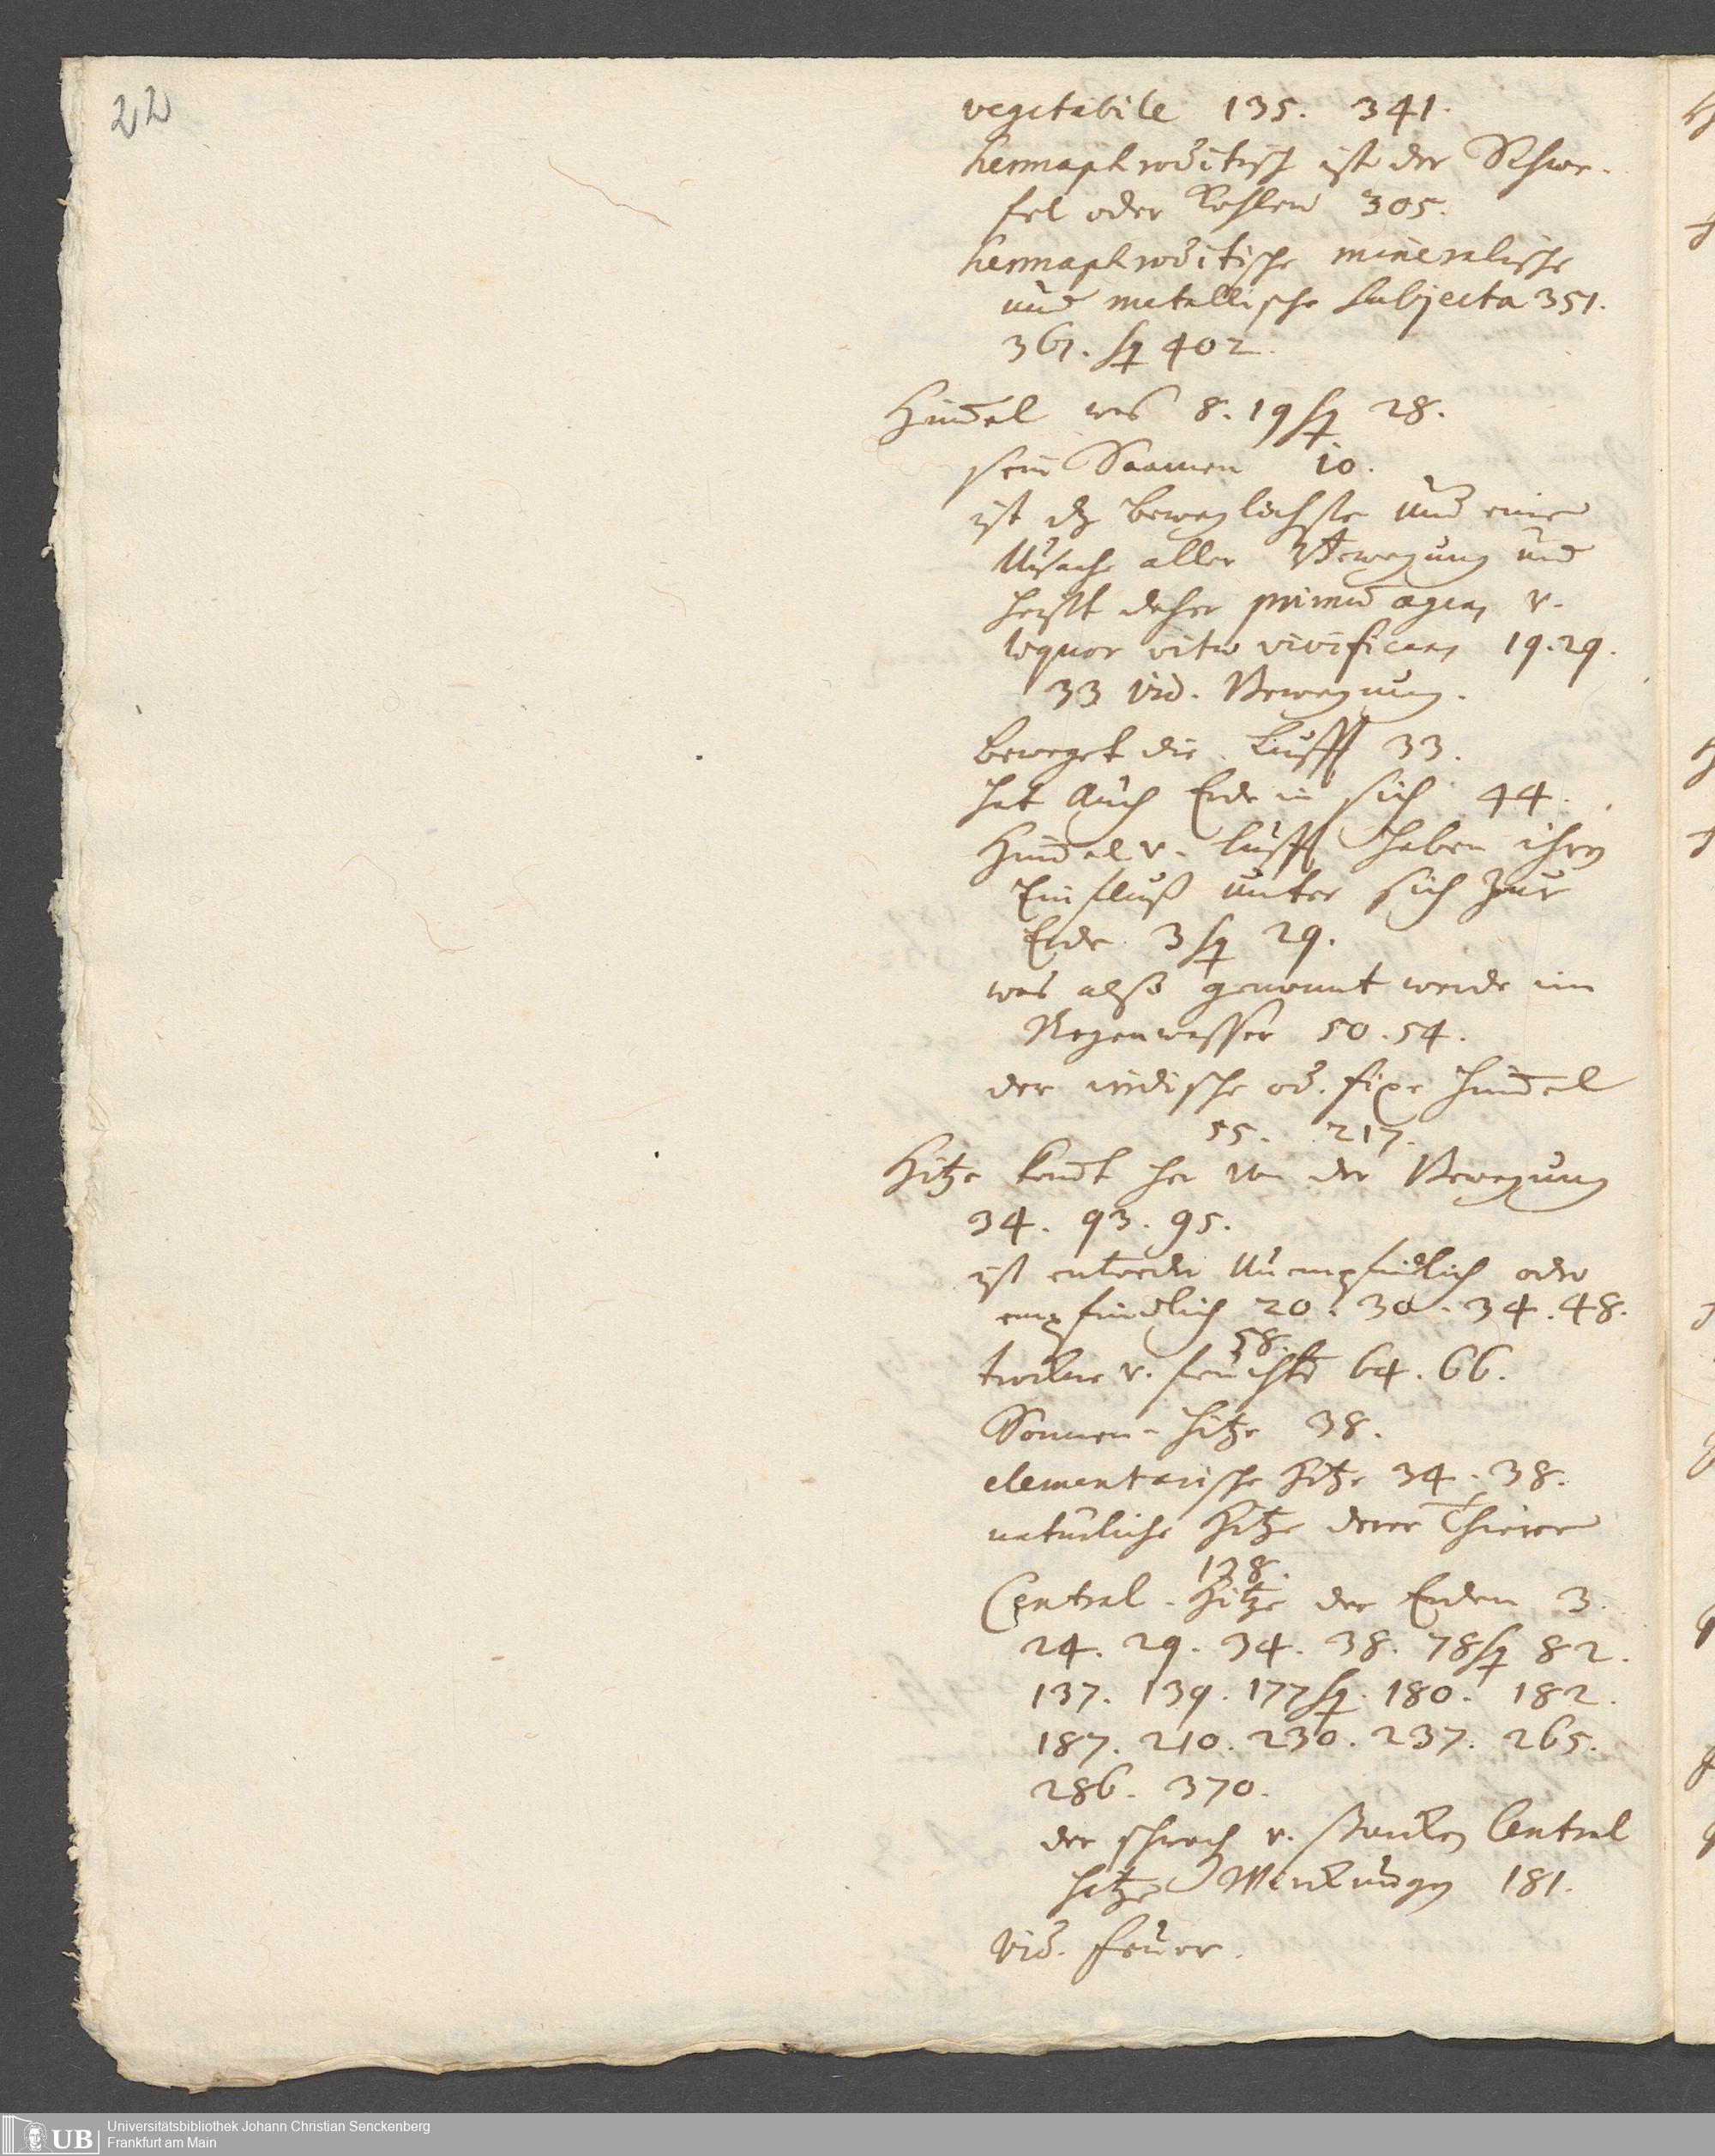 22
vegetabile 135. 341.
hermaphroditisch ist der Schwe-
fel oder Kohlen 305.
hermaphroditische mineralische
und metallische subjecta 351.
361. sq 402.
Him̄el was 8. 19 sq 28.
sein Saamen 10.
ist dz beweglichste und eine
Ursache aller Bewegung und
heist daher primū agens v.
liquor vitæ vivificans 19. 29.
33 vid. Bewegung.
beweget die Lufft 33.
hat auch Erde in sich 44.
Him̄el v. Lufft haben ihren
Einfluß unter sich zur
Erde 3 sq 29.
was also genennt werde im
Regenwasser 50. 54.
der irrdische od. fixe Him̄el
55. 217.
Hitze kom̄t her von der Bewegung
34. 93. 95.
ist entweder Unempfindlich oder
empfindlich 20. 30. 34. 48.
58.
trockne v. feuchte 64. 66.
Sonnen-Hitze 38.
elementarische Hitze 34. 38.
natürliche Hitze derer Thiere
128.
Central-Hitze der Erden 3.
24. 29. 34. 38. 78 sq 82.
137. 139. 177 sq. 180. 182.
187. 210. 230. 237. 265.
286. 370.
der schwach v. starken Central
Hitze Wirkungen 181.
vid. Feuer.
UB
Universitätsbibliothek Johann Christian Senckenberg
Frankfurt am Main